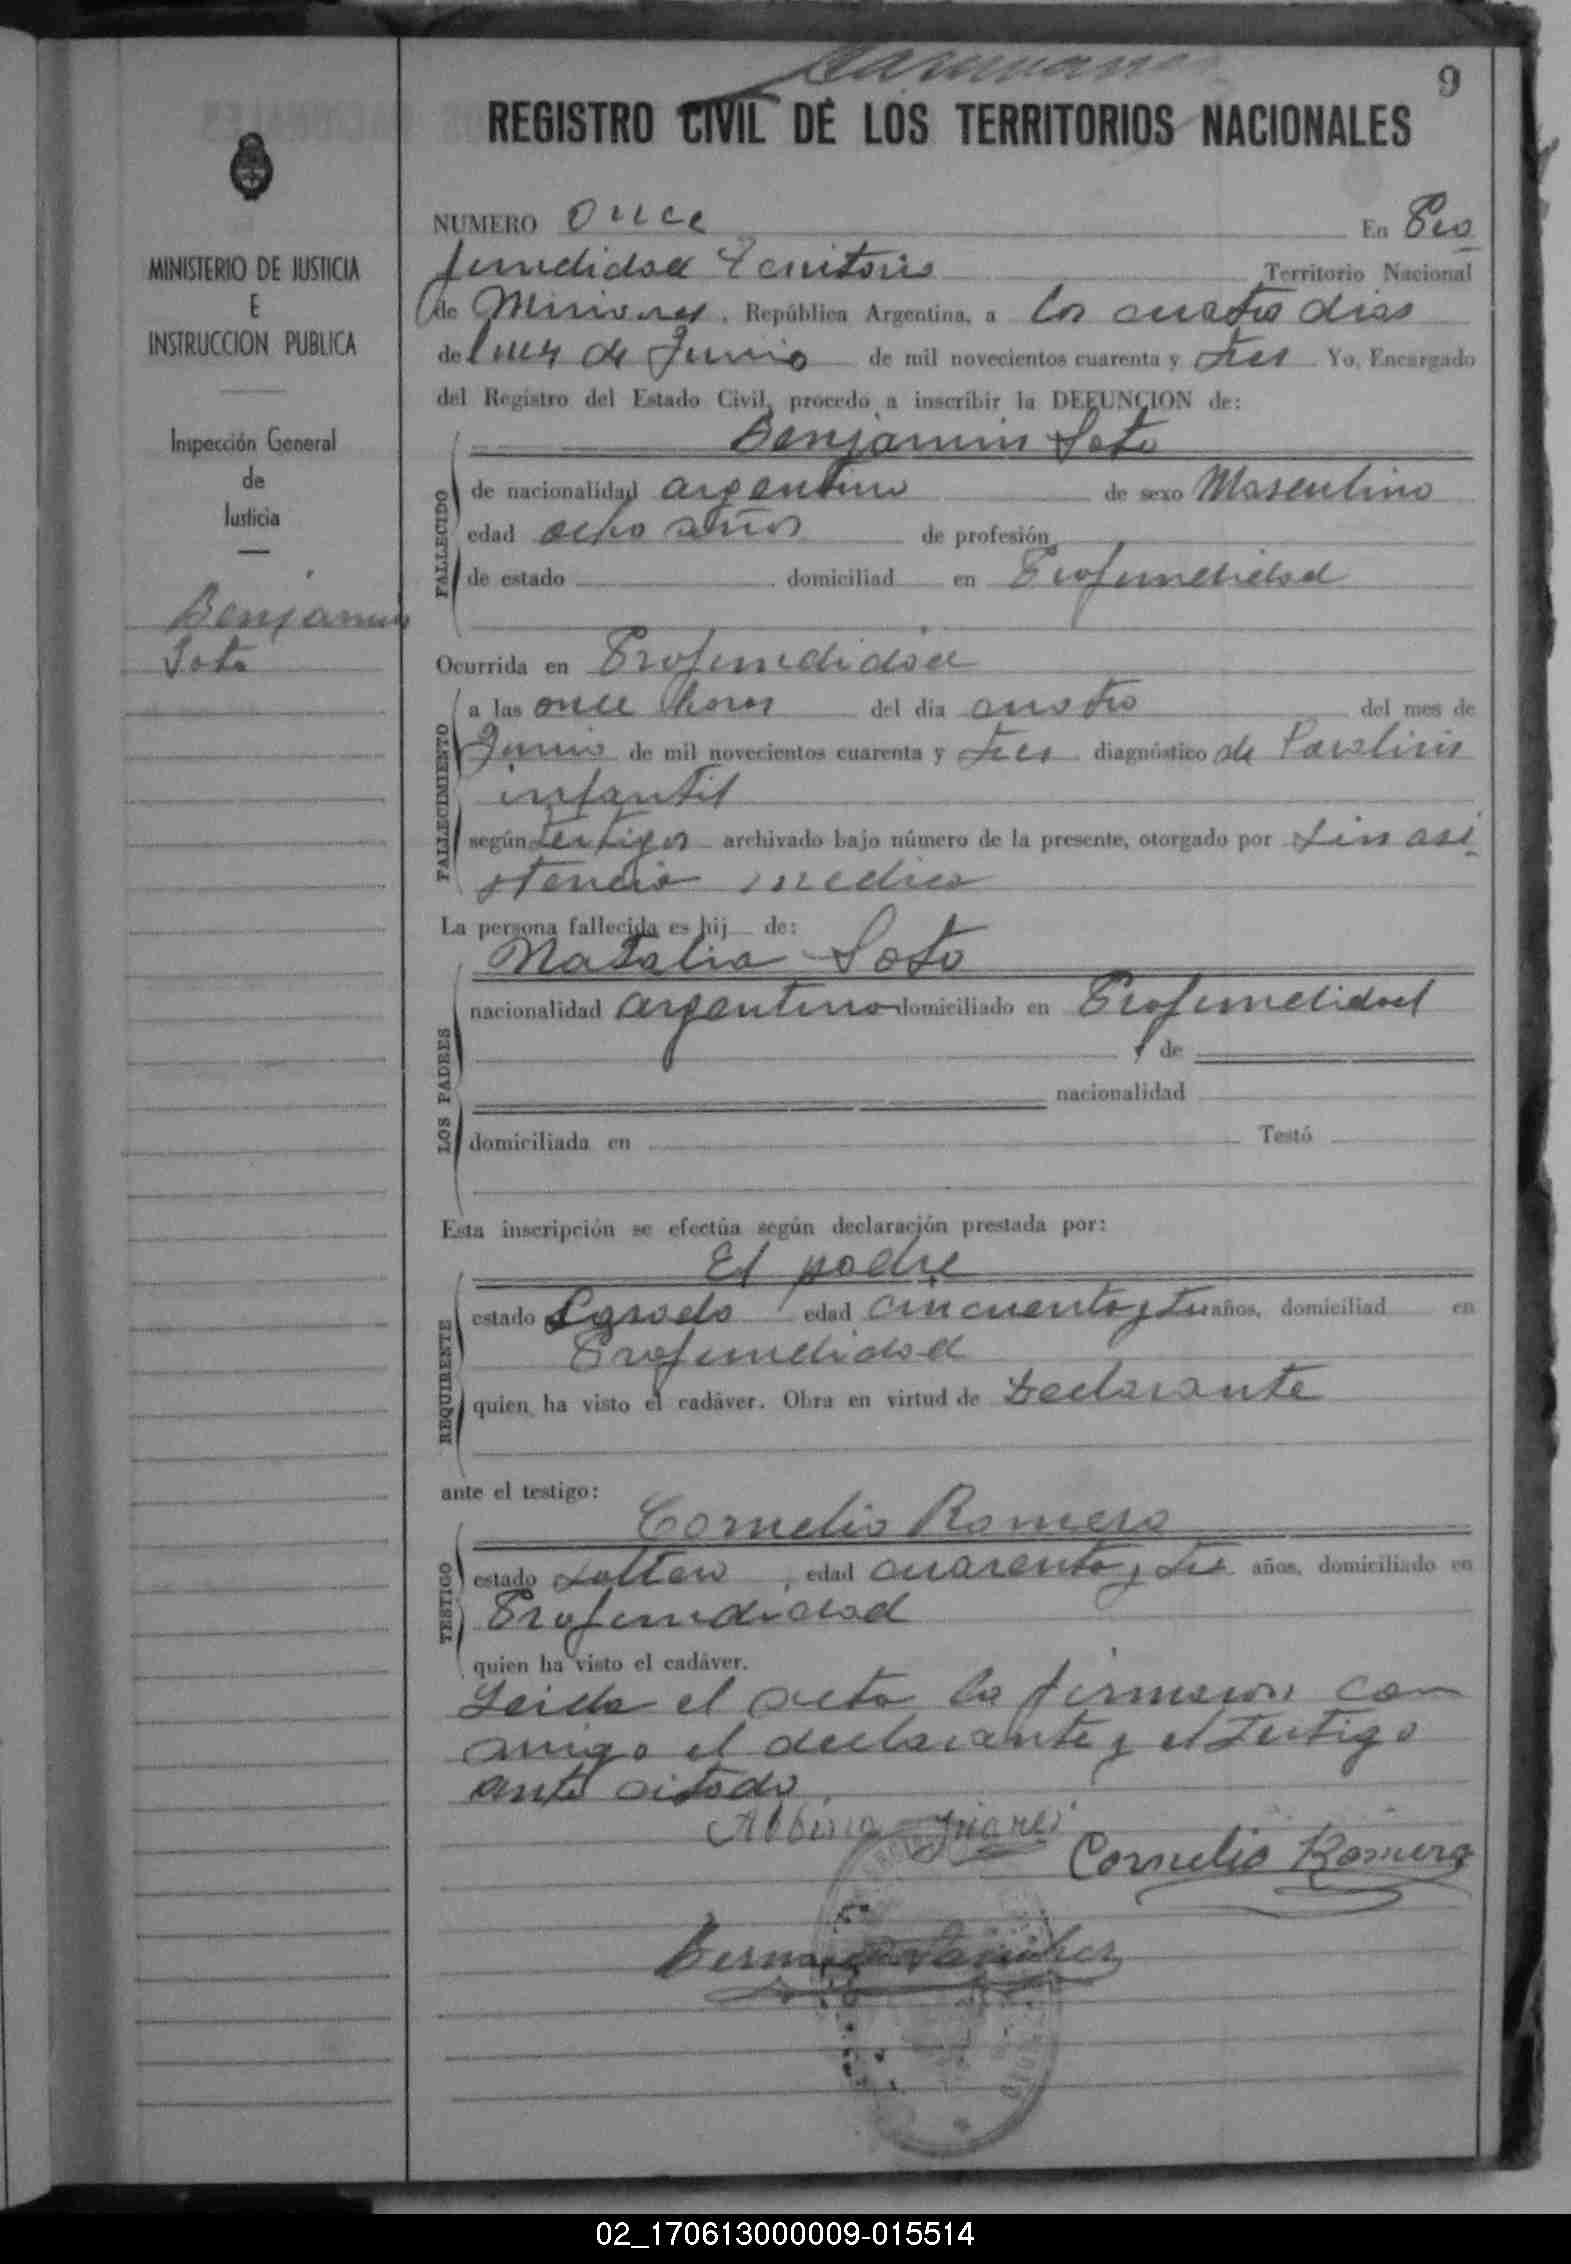 9
REGISTRO CIVIL DE LOS TERRITORIOS NACIONALES
MINISTERIO DE JUSTICIA
E
INSTRUCCION PUBLICA
Inspección General
de
Justicia
Benjamin
Soto
NUMERO Once En Pro
fundidad Territorio Territorio Nacional
de Misiones, República Argentina, a los cuatro dias
del mes de Junio de mil novecientos cuarenta y tres Yo, Encargado
del Registro del Estado Civil, procedo a inscribir la DEFUNCION de:
Benjamin Soto
FALLECIDO
de nacionalidad argentino de sexo Masculino
edad ocho años de profesión
de estado domiciliad en Profundidad
Ocurrida en Profundidad
FALLECIMIENTO
a las once horas del día cuatro del mes de
Junio de mil novecientos cuarenta y tres diagnóstico de Paralisis
infantil
según testigos archivado bajo número de la presente, otorgado por sin asi
stencia medica
La persona fallecida es hij de:
Natalia Soto
LOS PADRES
nacionalidad argentino domiciliado en Profundidad
y de
nacionalidad
domiciliada en Testó
Esta inscripción se efectúa según declaración prestada por:
El padre
REQUIRENTE
estado Casado edad cincuenta y tres años, domiciliad en
Profundidad
quien ha visto el cadáver. Obra en virtud de Declarante
ante el testigo:
Cornelio Romero
TESTIGO
estado soltero, edad cuarenta y tres años, domiciliado en
Profundidad
quien ha visto el cadáver.
Leida el acta la firmaron con
migo el declarante y el testigo
ante citado
Cornelio Romero
02_170613000009-015514